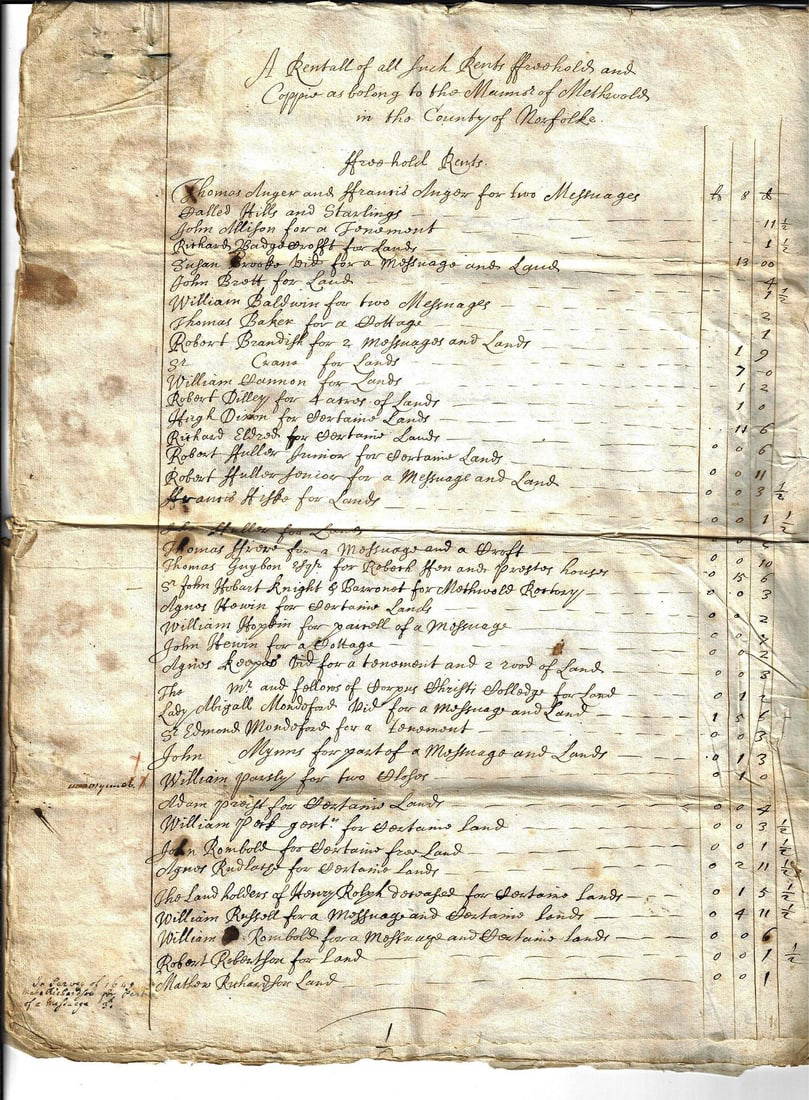 A Rentall of all Such Rents ffreehold and
Coppie as belong to the Mannor of Methwold
in the County of Norfolke.
ffreehold Rents.
Thomas Anger and ffrancis Anger for two Messuages
Called Hills and Starlings 11 ½
John Allison for a Tenement 1 ½
Richard Badgcrofft for Lands
Susan Brooke Vid for a Messuage and Land 13 00
John Brett for Land 4
William Baldwin for two Messuages 1 ½
Thomas Baker for a Cottage 2
Robert Brandish for 2 Messuages and Lands 1
Sr Crane for Lands 1 9
William Cannon for Lands 7 0
Robert Dilley for 4 acres of Lands 1 2
Hugh Dixon for Certaine Lands 1 0
Richard Eldred for Certaine Lands 11 6
Robert ffuller Junior for Certaine Lands 0 0 6
Robert ffuller Senior for a Messuage and Land 0 0 11
ffrancis ffiske for Lands 0 0 3 ½
ffuller for Lands 0 0 1 ½
Thomas ffrere for a Messuage and a Croft
Thomas Guybon Esqr for Robeck ffen and Prestes houses 0 0 10
Sr John Hobart Knight & Barronet for Methwold Rectory 0 15 6
Agnes Hewin for Certaine Lands 0 0 3
William Hopkin for parcell of a Messuage
John Hewin for a Cottage
Agnes Vid for a tenement and 2 rood of Land
The Mr and fellows of Corpus Christi Colledge for Land
Lady Abigall Mondeford Vid for a Messuage and Land
Sr Edmond Mondeford for a Tenement
John Mynns for part of a Messuage and Lands 0 1 3
William Parsly for two Closes 0 1 0
Adam Preist for Certaine Lands 0 0 4
William Peck gent for Certaine Land 0 0 3 ½
John Rombold for Certaine free Land 0 0 1 ½
Agnes for Certaine Lands 0 2 11 ½
The Land holders of Henry Rolph deceased for Certaine Lands 0 1 5 ½
William Russell for a Messuage and Certaine Lands 0 4 11 ½
William Rombold for a Messuage and Certaine Lands 0 0 6
Robert Robertson for Land 0 0 1 ½
Mathew Richardson Land 0 0 1
In Survey of 1649
Richardson for
of a Messuage
1